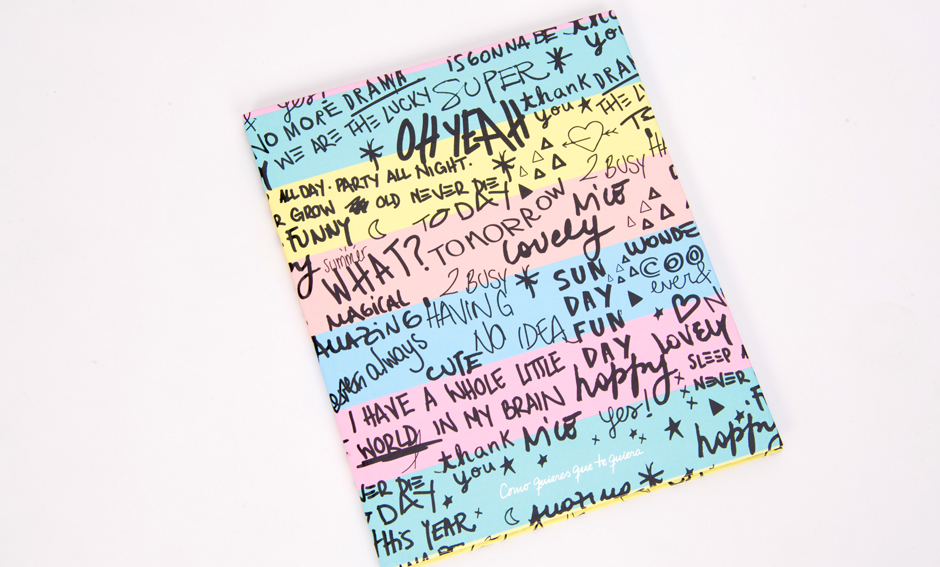 IS GONNA BE
thank
you
yes!
NO MORE DRAMA
SUPER
WE ARE THE LUCKY
OH YEAH
thank
you
DRAMA
THE LU
ALL DAY · PARTY ALL NIGHT.
R GROW OLD NEVER DIE
2 BUSY
FUNNY
TODAY
summer
WHAT?
TOMORROW
MiCO
lovely
MAGICAL
2 BUSY
SUN
DAY
FUN
DAY
WONDE
COO
ever&
AMAZING!
HAVING
NO IDEA
always
CUTE
I HAVE A WHOLE LITTLE
WORLD IN MY BRAIN
happy
LOVELY
SLEEP A
NEVER
thank
you
MiCO
yes!
happy
Como quieres que te quiera
VER DIE
TODAY
THiS YEAR
AMAZING